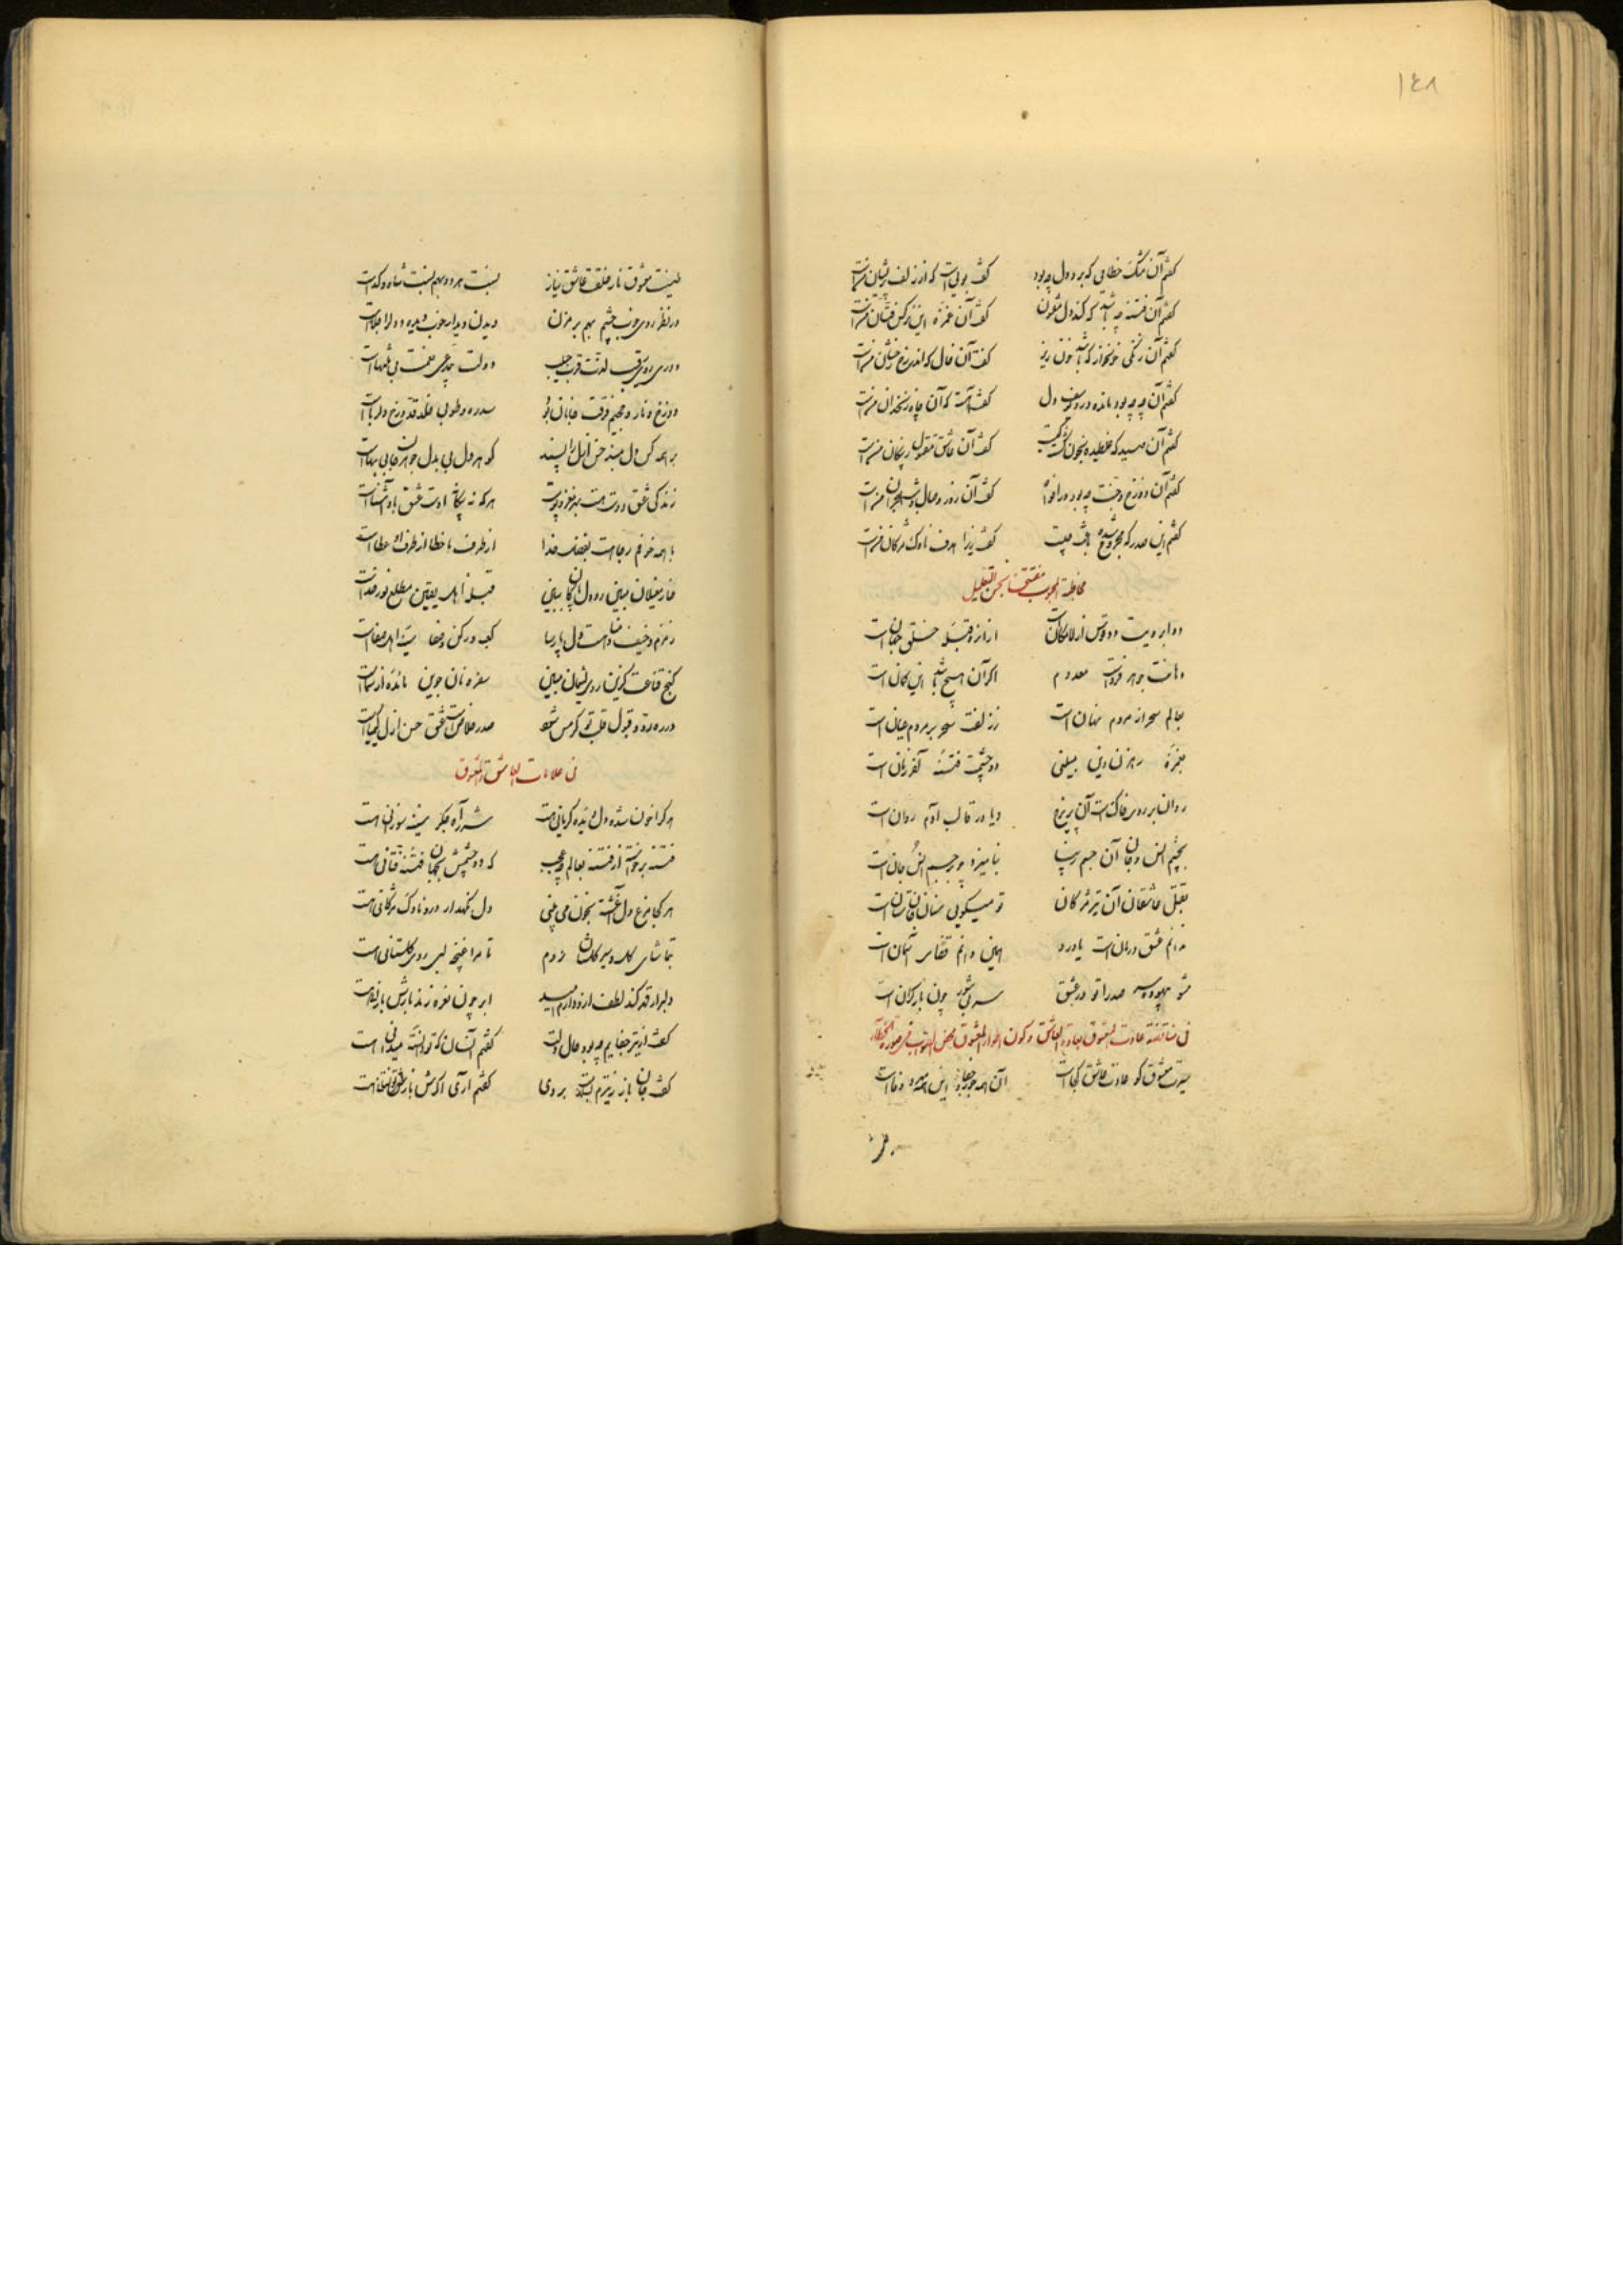 ۱۴۸
گفتم آن مشک خطایی که برد دل چه بود گفت بوییست که از زلف پریشان منست
گفتم آن فتنه چه باشد که کند دل مفتون گفت آن غمزه این نرگس فتان منست
گفتم آن زنگی خونخوار که باشد خون ریز گفت آن خال که اندر رخ رخشان منست
گفتم آن چه چه بود مانده درو یوسف دل گفت آنست که آن چاه زنخدان منست
گفتم آن صید که غلطیده بخون گشته کیست گفت آن عاشق مقتول ز پیکان منست
گفتم آن دوزخ و جنت چه بود گفت آن روز وصال و شب هجران منست
گفتم این صدر که مجروح شده باعث چیست گفت زیرا هدف ناوک مژگان منست
مخاطبة المحبوب بحسن التعلیل
دو ابرویت دو قوس از لامکان است از آنرو قبله خلق جهان است
دهانت جوهر فردست معدوم اگر آن هیچ باشد این کمان است
بعالم سحر از مردم نهان است ز زلفت سحر بر مردم عیان است
بغمزه رهزن دین دو چشمت فتنه آخر زمان است
روان بر روی خاکست آن پریرخ و یا در قالب آدم روان است
بچشم انس و جان آن جسم زیبا بنامیزد چو جسم انس جان است
بقتل عاشقان آن تیر مژگان تو میگویی سنان است
ندانم عشق درمان است یا درد همین دانم قضای آسمان است
مشو بیهوده صدرا تو در عشق سر پر شور چون بار گران است
فی مناقضة عادت المعشوق بعادة العاشق و کون اطوار المعشوق
سیرت معشوق کو عادت عاشق کجاست آن همه جور و جفا این همه مهر و وفاست
طینت معشوق ناز خلقت عاشق نیاز نسبت هر دو بهم نسبت شاه و گداست
در نظر روی خوب چشم بهم بر مزن دیدن دیدار خوب دیده و دل را جلاست
دوری روی رقیب لذت قرب حبیب دولت بی نعمت بی منتهاست
دوزخ و نار و جحیم فرقت جانان بود سدره و طوبی و خلد قد و رخ دلرباست
بر همه کس دل مبند حسن ازل را پسند گوهر دل بی بدل جوهر جان بی بهاست
زندگی عشق دوست هر که نه بیگانه اوست عشق باو آشناست
با همه خوفم رجاست بفضل خدا از طرف ما خطا از طرف او عطاست
خار مغیلان مبین رو دل پاکان ببین قبله اهل یقین مطلع نور خداست
زمزم و خیف و مناست دل پارسا کعبه و رکن و صفا سینه اهل صفاست
کنج قناعت گزین روی لئیمان مبین سفره نان جوین مائده از سماست
در ره رد و قبول قلب تو گر مس شود صدر خلاص است عشق حسن ازل کیمیاست
فی علامات العاشق و المعشوق
هر کرا خون شده دل دیده گریانی هست شرر آه جگر سینه سوزانی هست
فتنه برخواسته از فتنه بعالم چه عجب که دو چشمش بجهان فتنه فتانی هست
هر کجا مرغ دل آغشته بخون می بینی دل نگهدار درو ناوک مژگانی هست
بتماشای گل و سیر گلستان نروم تا مرا غنچه لبی روی گلستانی هست
دلبرا قهر کند لطف ازو دارم امید ابر چون نعره زند بارش بارانی هست
گفت از تیر جفایم چه بود حال دلت گفتم آنسان که تو دانسته میدانی هست
گفت جان باز ز تیرم بسلامت بردی گفتم آری اگرش باز